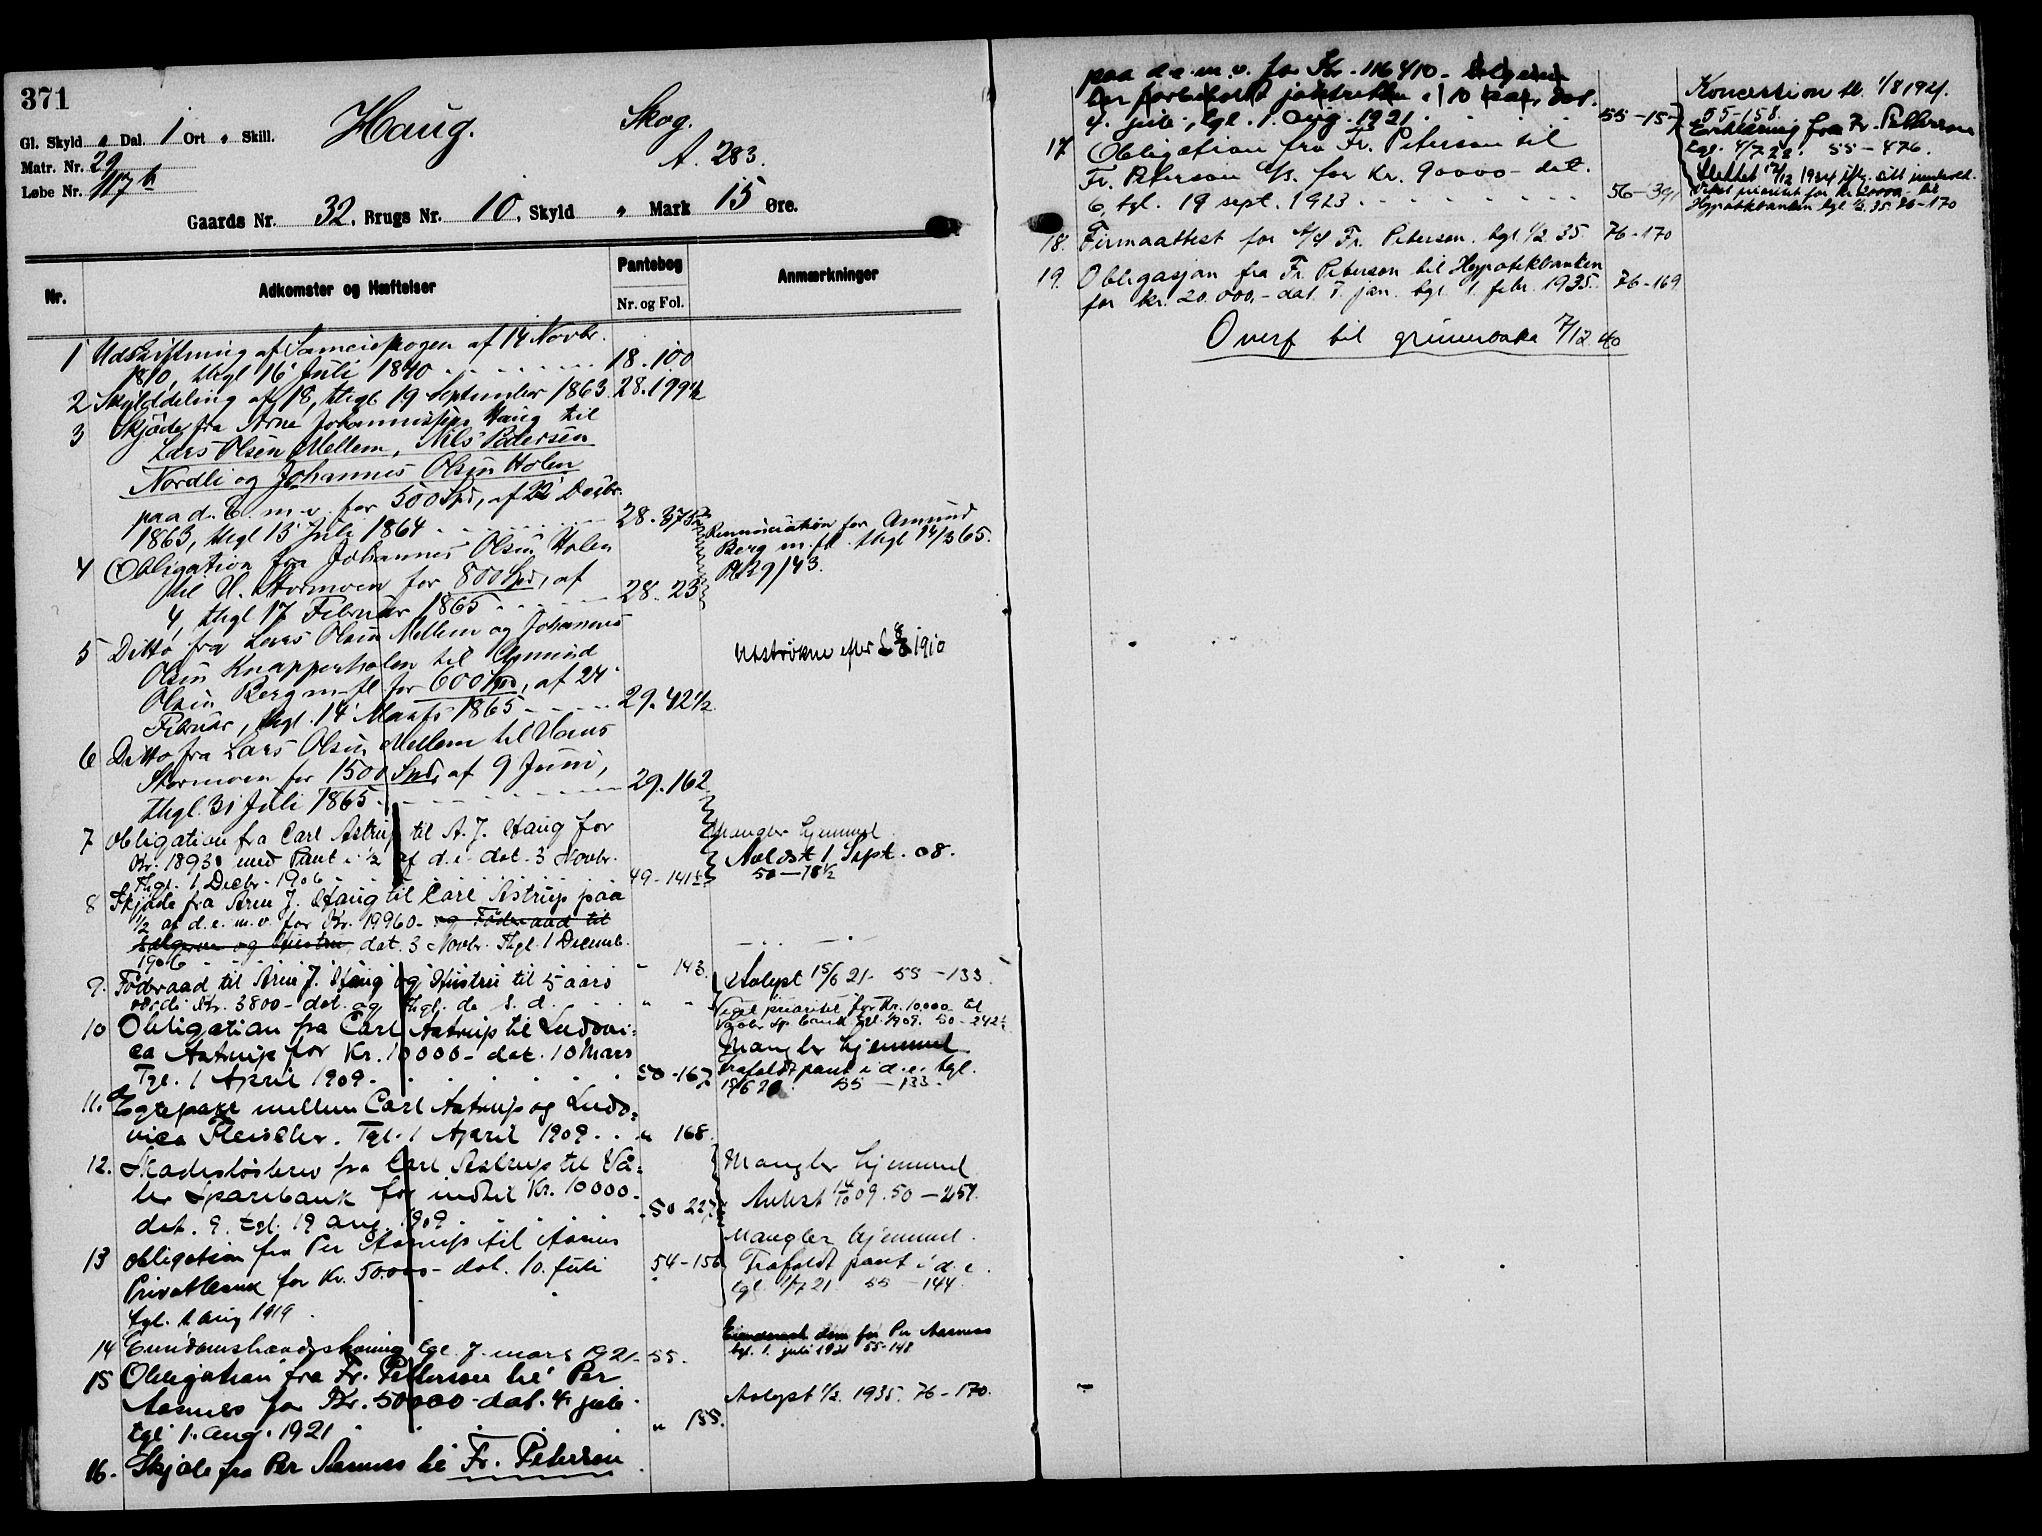 371
Gl. Skyld " Dal. 1 Ort " Skill.
Matr. Nr. 29
Løbe Nr. 117 b
Haug.
Skog.
A. 283.
Gaards Nr. 32. Brugs Nr. 10, Skyld " Mark 15 Øre.
Nr.
Adkomster og Hæftelser
Pantebog
Nr. og Fol.
Anmærkninger
1 Udskiftning af Sameieskogen af 14 Novbr.
1810, thgl 16 Juli 1840 18.100
2 Skylddeling af 18, thgl 19 September 1863 28.199½
3 Skjøde fra Arne Johannessen Haug til
Lars Olsen Mellem, Nils Pedersen
Nordli og Johannes Olsen Holen
paa d. E. m. v. for 500 Spd, af 22 Decbr.
1863, thgl 13 Juli 1864 28.375
4 Obligation fra Johannes Olsen Holen
til H. Stormoen for 800 Spd, af
4, thgl 17 Februar 1865 28.23
Renunciation for Amund
Berg m. fl. thgl 14/3 65.
29/43.
5 Ditto fra Lars Olsen Mellem og Johannes
Olsen Knapperholen til Amund
Olsen Berg m. fl. for 600 Spd, af 24
Februar, thgl. 14 Marts 1865 29.42½
Udstrøkne efter L 1910
6 Ditto fra Lars Olsen Mellem til Hans
Stormoen for 1500 Spd, af 9 Juni,
thgl. 31 Juli 1865 29.162
7 Obligation fra Carl Astrup til A. J. Haug for
Kr. 18930 med Pant i ½ af d. e. dat. 3 Novbr.
Thgl. 1 Decbr. 1906 49-141½
Mangler hjemmel
Avløst 1 Sept. 08.
50-78½
8 Skjøde fra Arne J. Haug til Carl Astrup paa
½ af d. e. m. v. for Kr. 19960- og Føderaad til
sælgeren og Hustru, dat. 3 Novbr. Thgl. 1 Decemb.
1906 " 143.
9. Føderaad til Arne J. Haug og Hustru til 5 aars
værdi Kr. 3800- dat. og Thgl. do s. d. " "
Avlyst 15/6 21. 55-133
Viget prioritet for Kr. 10.000 til
Vaaler Sp. bank tgl. 1909. 50-242½
10 Obligation fra Carl Astrup til Ludovi=
ca Astrup for Kr. 10000- dat. 10 Mars
Tgl. 1 April 1909. 50-167
Mangler hjemmel
Frafaldt pant i d. e. tgl.
15/6 21. 55-133.
11. Egtepagt mellem Carl Astrup og Ludo=
vica Fleischer. Tgl. 1 April 1909. " 168.
12. Skadesløsbrev fra Carl Astrup til Vå=
ler Sparebank for indtil Kr. 10000-
dat. 9. tgl. 19 aug. 1909 50 227
Mangler hjemmel
Avlyst 14/10 09. 50-257.
13 Obligation fra Per Aasnes til Aasnes
Privatbank for Kr. 50.000- dat. 10. juli
tgl. 1. aug 1919 54-156
Mangler hjemmel.
Frafaldt pant i d. e.
tgl. 1/7 21 55-144.
14 Eiendomshændskoning tgl. 7. mars 1921- 55.
Eiendoms dom for Per Aasness
tgl. 1. juli 1921 55-148
15 Obligation fra Fr. Petterson til Per
Aasness for Kr. 50000- dat. 4. juli
tgl. 1. aug. 1921 " 155.
Avlyst 1/2 1935. 76-170.
16. Skjøde fra Per Aasness til Fr. Peterson
paa d. e. m. v. for Kr. 116410- Selgeren
har forbeholdt jaktretten i 10 aar, dat.
4. juli, tgl. 1. aug. 1921 55-157
Koncession tl. 1/8 1921.
55-158.
Erklæring fra Fr. Petterson
tgl. 4/7 28. 55-476.
17 Obligation fra Fr. Peterson til
Fr. Peterson A/S. for Kr. 90000- dat.
6, tgl. 19 sept. 1923 56-391
Slettet 17/12 1934 iflg. sitt innhold.
Veket prioritet for kr 20000 til
Hypotekbanken tgl 1/2 35 76-170
18. Firmaattest for A/S Fr. Peterson. tgl. 1/2 35 76-170
19. Obligasjon fra Fr. Peterson til Hypotekbanken
for kr. 20.000.- dat. 7. jan. tgl. 1. febr. 1935. 76-169
Overf til grunnboka 7/12 40